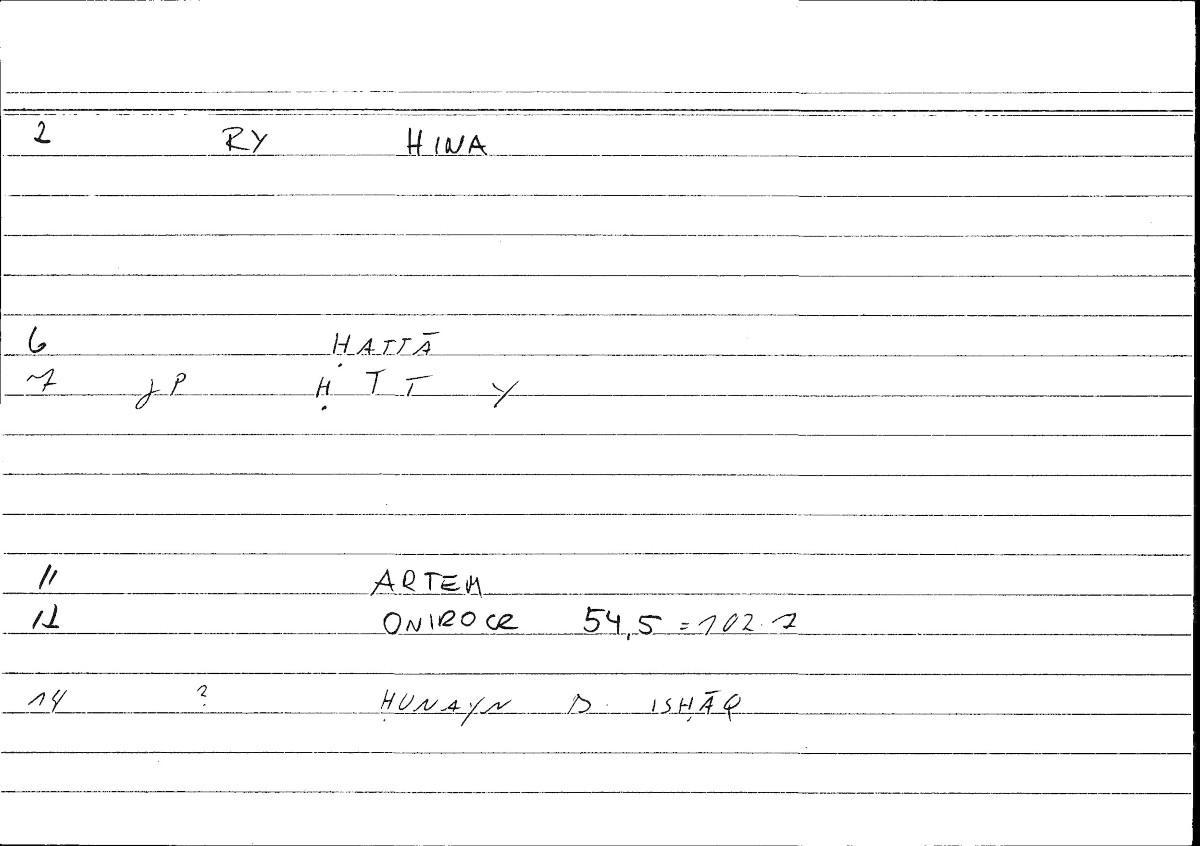 2 RY HINA
6 ḤATTĀ
7 JP Ḥ T T Y
11 ARTEM
12 ONIROCR 54,5 = 102.7
14 ? ḤUNAYN B. ISḤĀQ